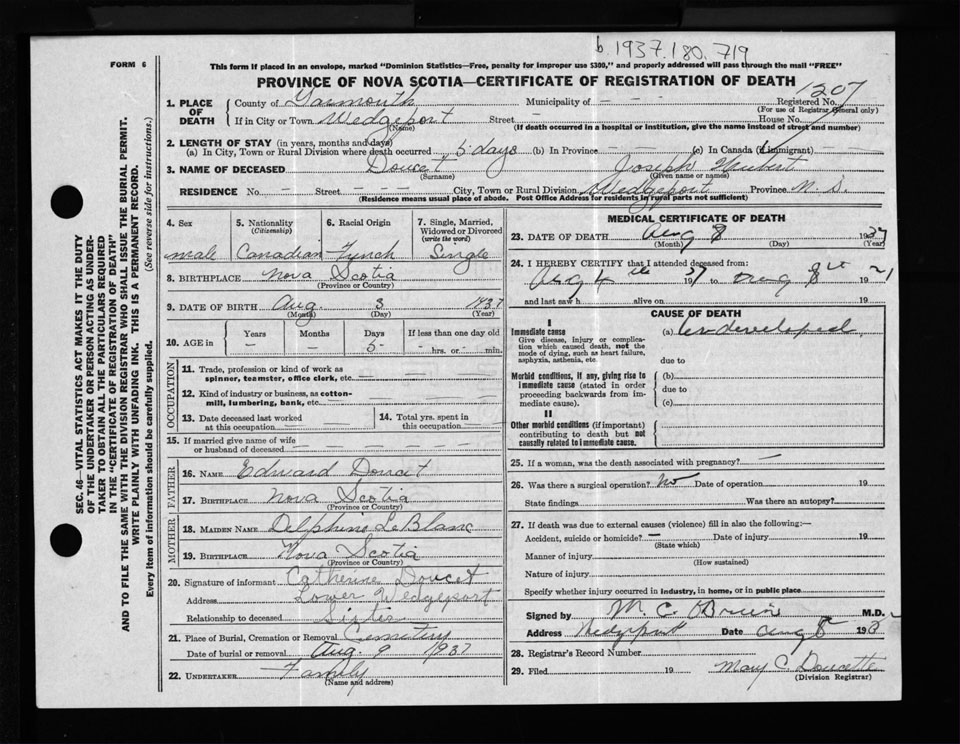 b. 1937. 180. 719
FORM 6
This form if placed in an envelope, marked "Dominion Statistics—Free, penalty for improper use $300," and properly addressed will pass through the mail "FREE"
PROVINCE OF NOVA SCOTIA—CERTIFICATE OF REGISTRATION OF DEATH
1207
1. PLACE OF DEATH
County of Yarmouth Municipality of - - - Registered No.
(For use of Registrar General only)
If in City or Town Wedgeport Street - House No.
(Name) (If death occurred in a hospital or institution, give the name instead of street and number)
2. LENGTH OF STAY (in years, months and days)
(a) In City, Town or Rural Division where death occurred 5 days (b) In Province - - (c) In Canada (if immigrant) - -
3. NAME OF DECEASED Doucet Joseph Hubert
(Surname) (Given name or names)
RESIDENCE No. - Street - - - City, Town or Rural Division Wedgeport Province N. S.
(Residence means usual place of abode. Post Office Address for residents in rural parts not sufficient)
4. Sex 5. Nationality (Citizenship) 6. Racial Origin 7. Single, Married, Widowed or Divorced (write the word)
male Canadian French Single
8. BIRTHPLACE Nova Scotia
(Province or Country)
9. DATE OF BIRTH Aug. 3 1937
(Month) (Day) (Year)
10. AGE in Years Months Days If less than one day old
- - 5 - hrs. or - min.
OCCUPATION
11. Trade, profession or kind of work as spinner, teamster, office clerk, etc. - - - -
12. Kind of industry or business, as cotton-mill, lumbering, bank, etc. - - - -
13. Date deceased last worked at this occupation - - -
14. Total yrs. spent in this occupation - -
15. If married give name of wife or husband of deceased - - - -
FATHER
16. NAME Edward Doucet
17. BIRTHPLACE Nova Scotia
(Province or Country)
MOTHER
18. MAIDEN NAME Delphine LeBlanc
19. BIRTHPLACE Nova Scotia
(Province or Country)
20. Signature of informant Catherine Doucet
Address Lower Wedgeport
Relationship to deceased Sister
21. Place of Burial, Cremation or Removal Cemetery
Date of burial or removal Aug. 9 1937
22. UNDERTAKER Family
(Name and address)
MEDICAL CERTIFICATE OF DEATH
23. DATE OF DEATH Aug 8 1937
(Month) (Day) (Year)
24. I HEREBY CERTIFY that I attended deceased from:
Aug 4th 1937 to Aug 8th 19
and last saw h alive on 19
CAUSE OF DEATH
I
Immediate cause (a) Undeveloped
Give disease, injury or complication which caused death, not the mode of dying, such as heart failure, asphyxia, asthenia, etc.
due to
Morbid conditions, if any, giving rise to immediate cause (stated in order proceeding backwards from immediate cause).
(b)
due to
(c)
II
Other morbid conditions (if important) contributing to death but not causally related to immediate cause.
25. If a woman, was the death associated with pregnancy? -
26. Was there a surgical operation? No Date of operation 19
State findings Was there an autopsy?
27. If death was due to external causes (violence) fill in also the following:—
Accident, suicide or homicide? - Date of injury 19
(State which)
Manner of injury
(How sustained)
Nature of injury
Specify whether injury occurred in industry, in home, or in public place
Signed by M. C. O'Brien M.D.
Address Wedgeport Date Aug 8 193
28. Registrar's Record Number
29. Filed 19 Mary C. Doucette
(Division Registrar)
SEC. 46—VITAL STATISTICS ACT MAKES IT THE DUTY
OF THE UNDERTAKER OR PERSON ACTING AS UNDER-
TAKER TO OBTAIN ALL THE PARTICULARS REQUIRED
IN THE "CERTIFICATE OF REGISTRATION OF DEATH"
AND TO FILE THE SAME WITH THE DIVISION REGISTRAR WHO SHALL ISSUE THE BURIAL PERMIT.
WRITE PLAINLY WITH UNFADING INK. THIS IS A PERMANENT RECORD.
Every item of information should be carefully supplied. (See reverse side for instructions.)